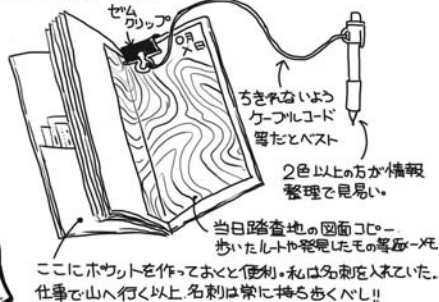 ゼム
クリップ
〇月
×日
ちぎれないよう
ケーブルコード
等だとベスト
2色以上の方が情報
整理で見易い。
当日踏査地の図面コピー
歩いたルートや発見したもの等をメモ
ここにポケットを作っておくと便利。私は名刺を入れていた。
仕事で山へ行く以上、名刺は常に持ち歩くべし!!